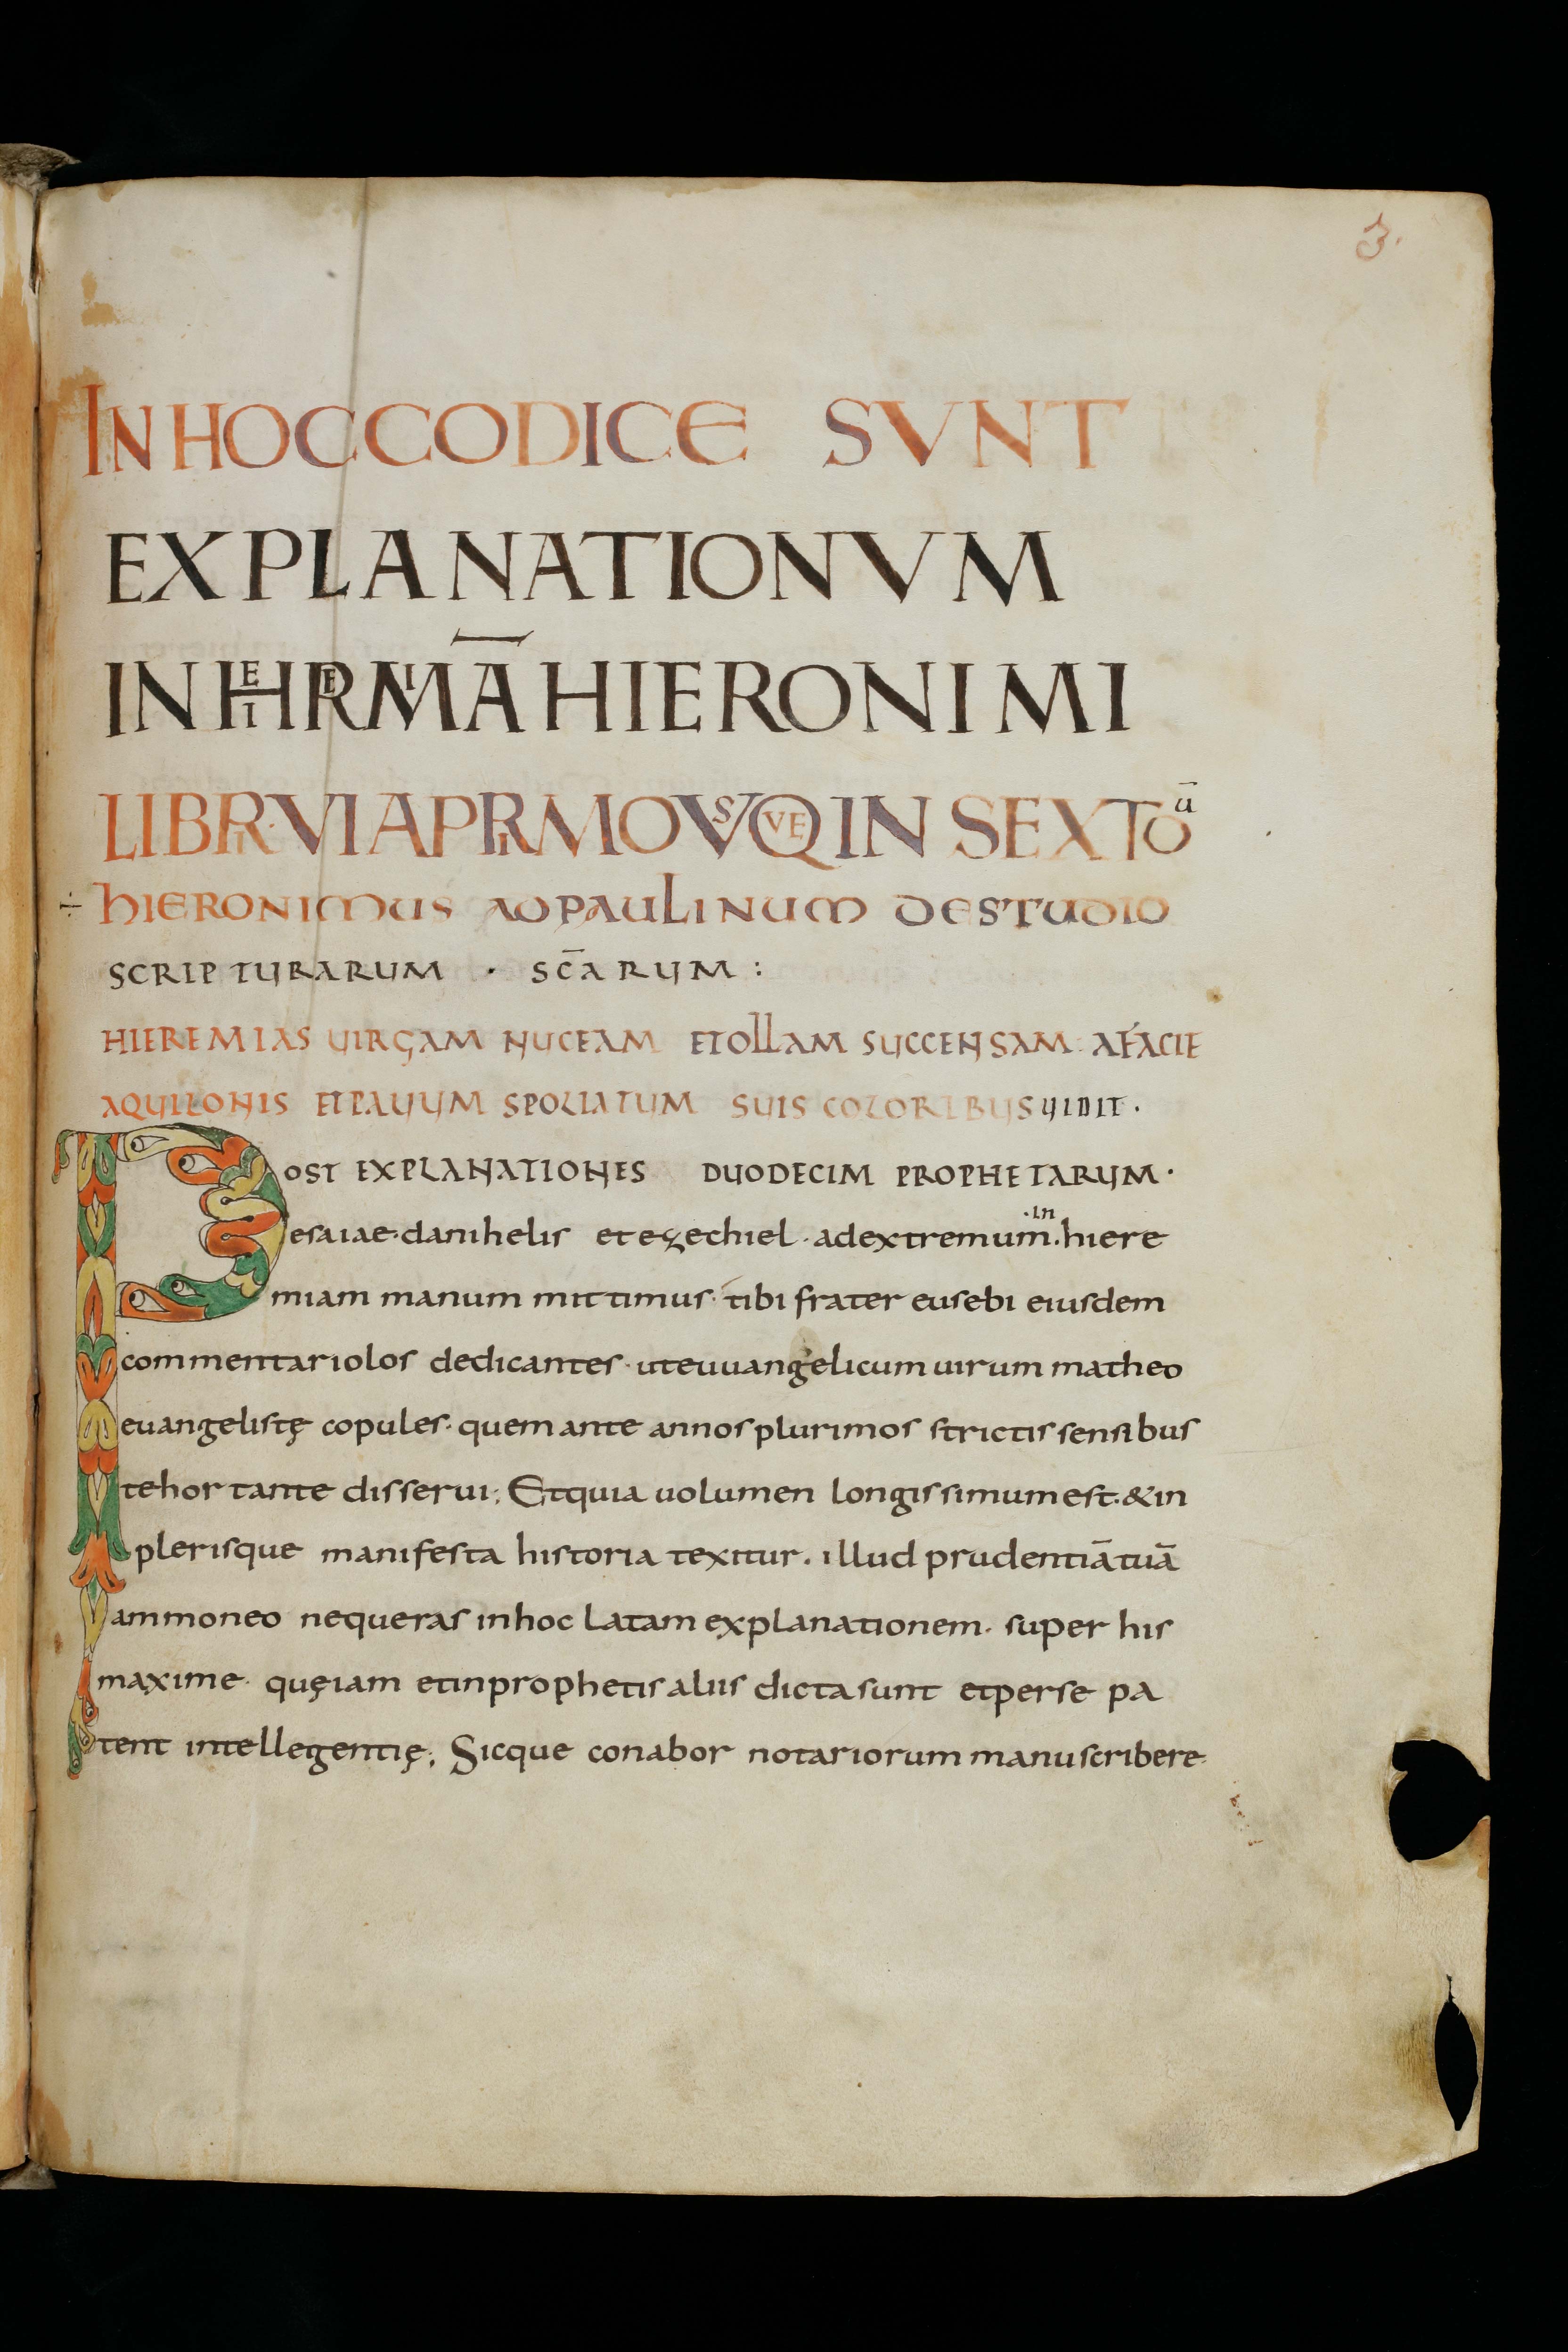 3.
IN HOC CODICE SVNT
EXPLANATIONVM
IN HIEREMIĀ HIERONIMI
LIBRI·VI A PRIMO VSQVE IN SEXTO ū
÷ hIERONIMUS AD PAULINUM DE STUDIO
SCRIPTURARUM · SC̄ARUM :
HIEREMIAS UIRGAM NUCEAM ET OLLAM SUCCENSAM A FACIE
AQUILONIS ET PAUUM SPOLIATUM SUIS COLORIBUS UIDIT ·
POST EXPLANATIONES DUODECIM PROPHETARUM ·
esaiae · danihelis et ezechiel · ad extremum ·in· hiere
miam manum mittimus · tibi frater eusebi eiusdem
commentariolos dedicantes · ut euuangelicum uirum matheo
euangelistę copules · quem ante annos plurimos strictis sensibus
te hortante disserui; Et quia uolumen longissimum est · & in
plerisque manifesta historia texitur · illud prudentiā tuā
ammoneo ne queras in hoc latam explanationem · super his
maxime · quę iam et in prophetis aliis dicta sunt et per se pa
tent intellegentię; Sicque conabor notariorum manu scribere ·